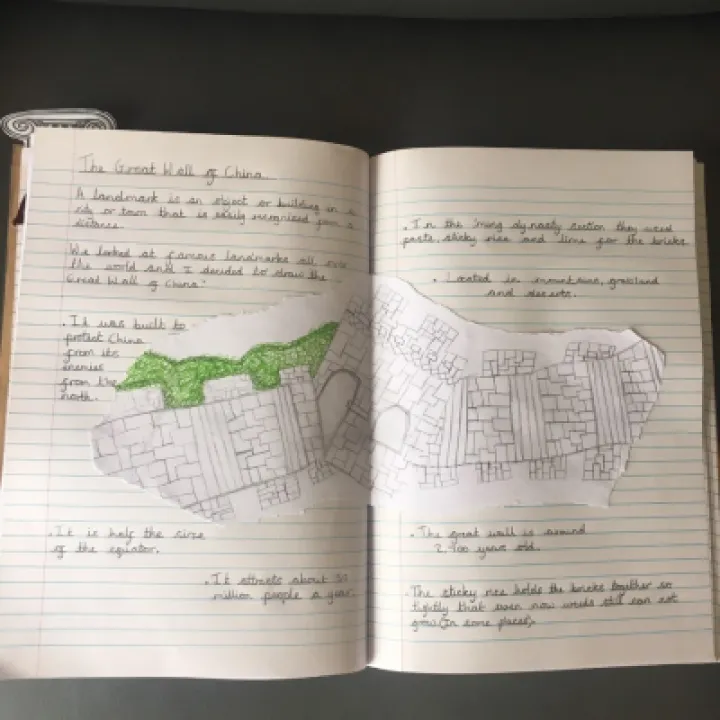 The Great Wall of China
A landmark is an object or building in a
city or town that is easily recognized from a
distance.
We looked at famous landmarks all over
the world and I decided to draw the
Great Wall of China.
. It was built to
protect China
from its
enemies
from the
north.
. It is half the size
of the equator.
. It attracts about
million people a year.
. In the 'ming dynasty section they used
paste, sticky rice and lime for the bricks
. Located in mountains, grassland
and deserts.
. The great wall is around
years old.
. The sticky rice holds the bricks together so
tightly that even now weeds still can not
grow (in some places).